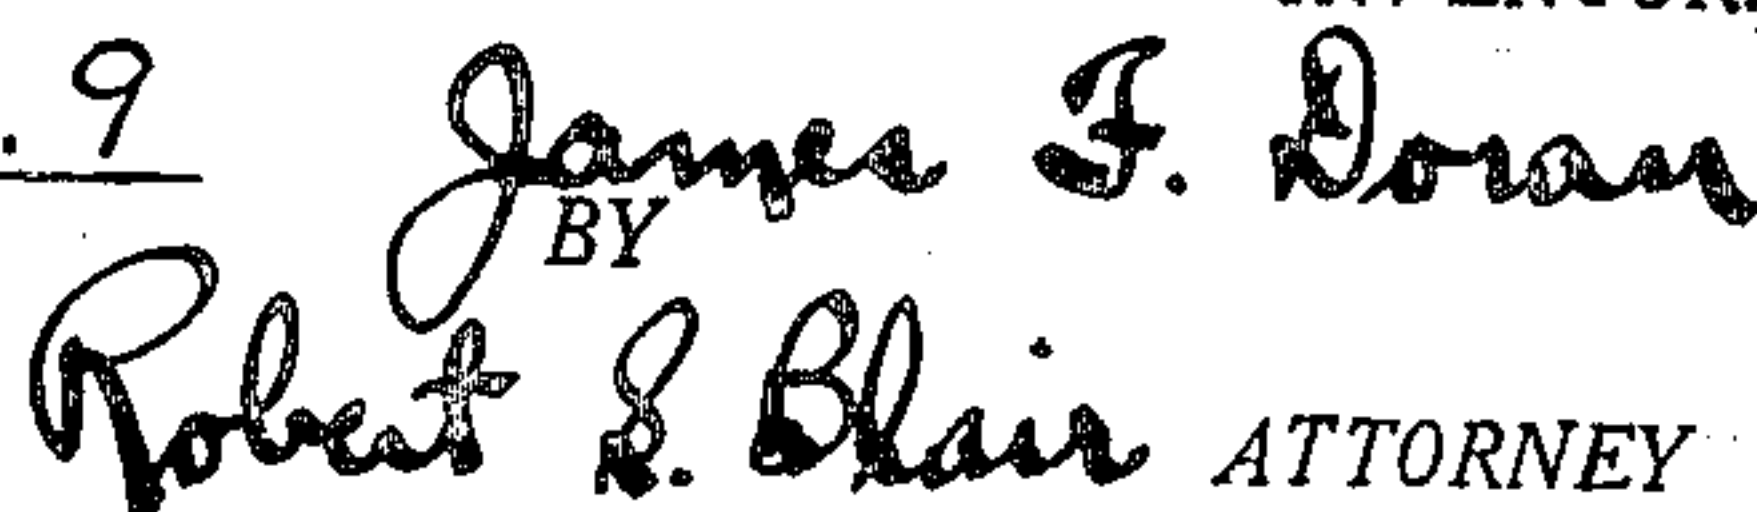 . 9 James F. Doran
BY
Robert S. Blair ATTORNEY